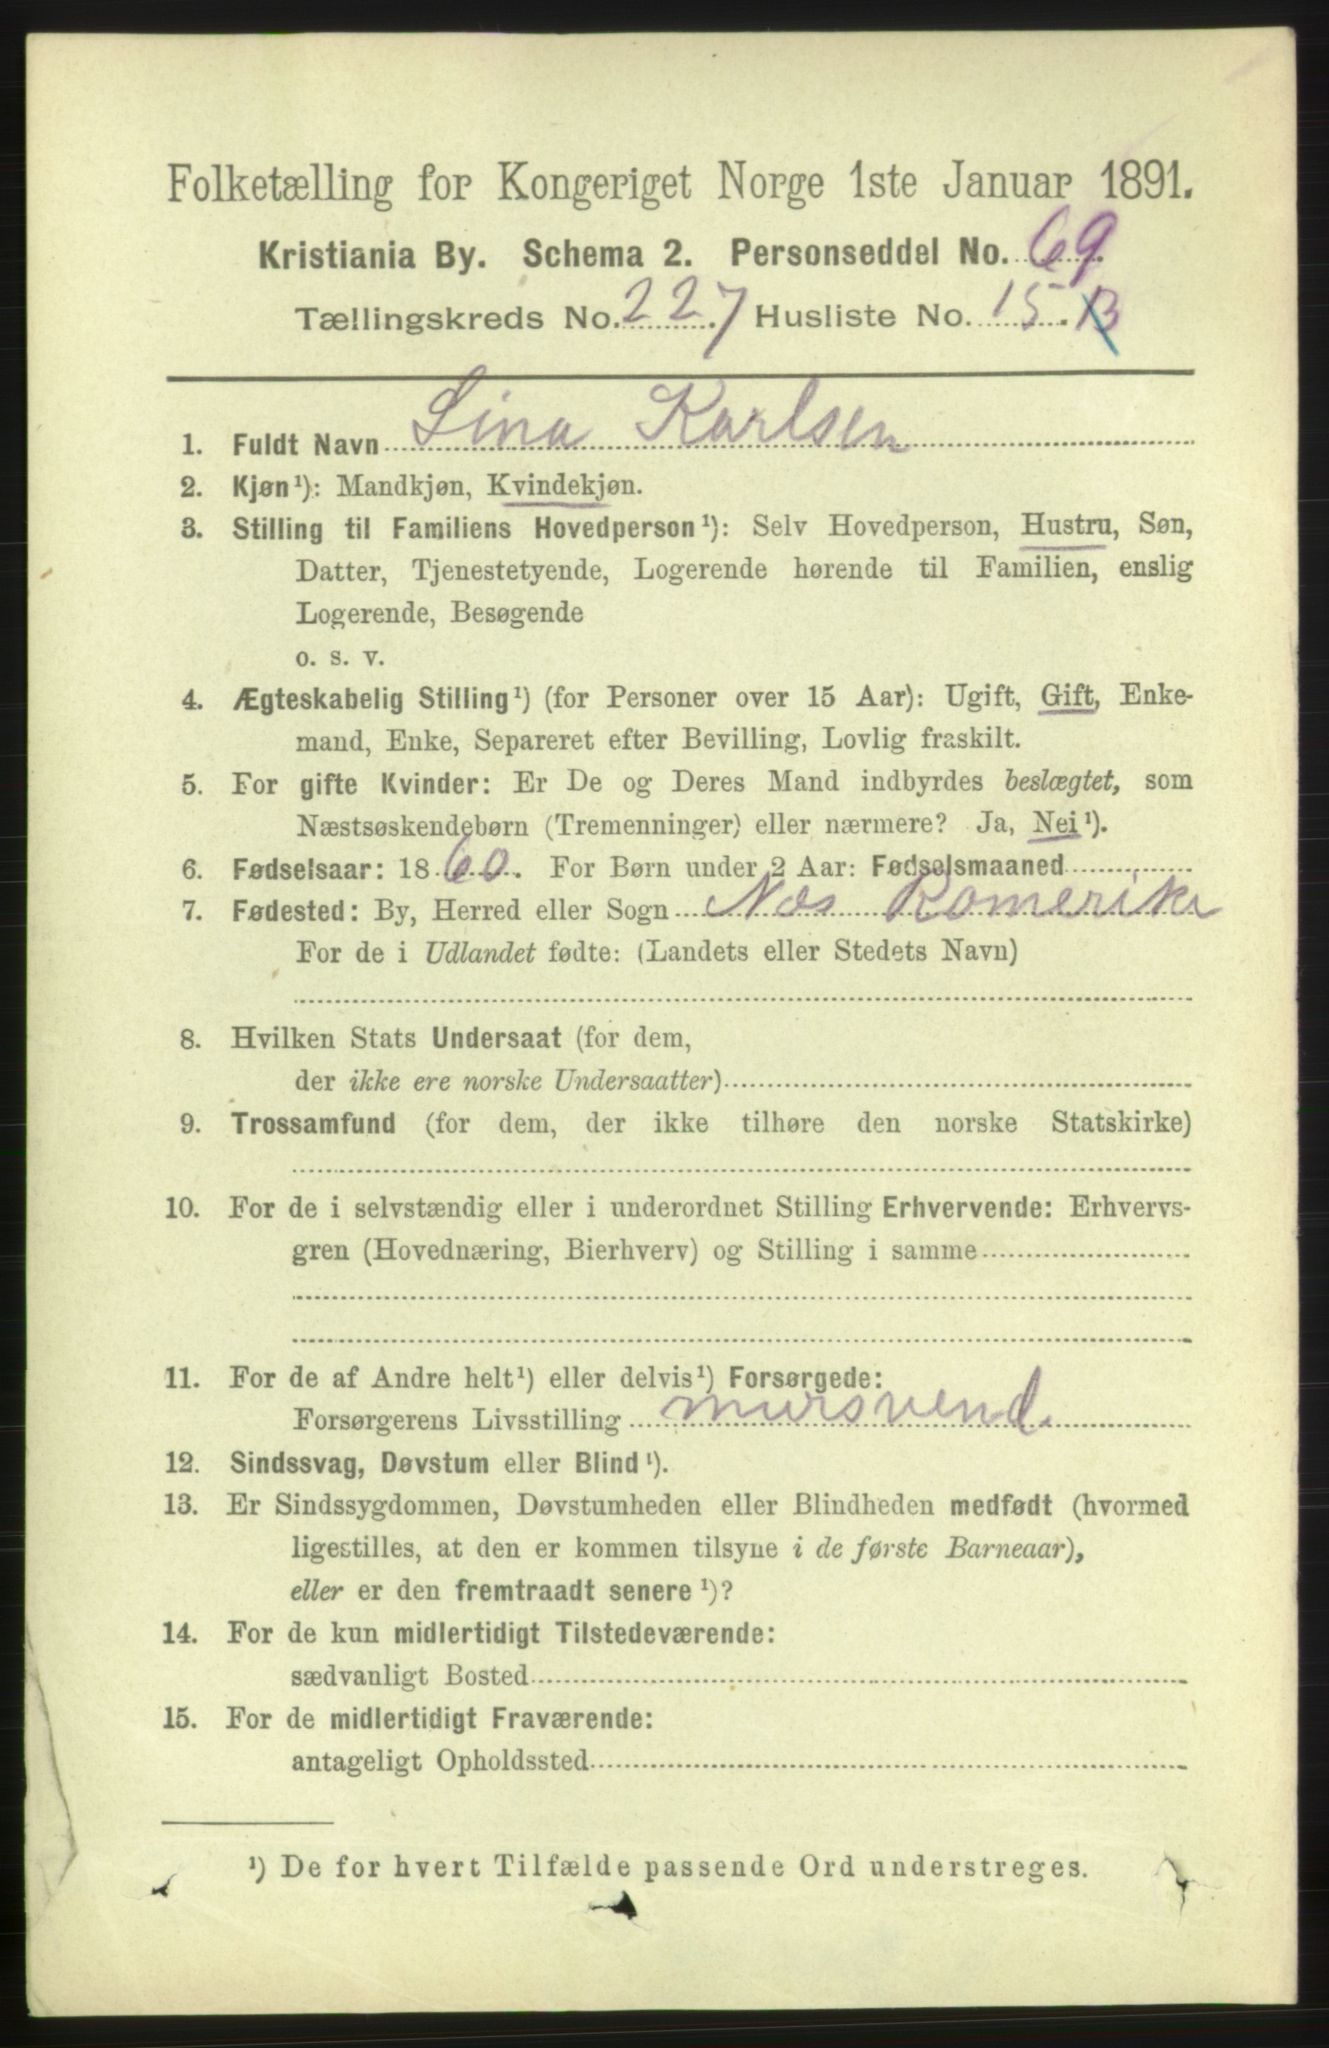 Folketælling for Kongeriget Norge 1ste Januar 1891.
Kristiania By. Schema 2. Personseddel No. 69.
Tællingskreds No. 227. Husliste No. 15. B
1. Fuldt Navn Lina Karlsen
2. Kjøn¹): Mandkjøn, Kvindekjøn.
3. Stilling til Familiens Hovedperson¹): Selv Hovedperson, Hustru, Søn,
Datter, Tjenestetyende, Logerende hørende til Familien, enslig
Logerende, Besøgende
o. s. v.
4. Ægteskabelig Stilling¹) (for Personer over 15 Aar): Ugift, Gift, Enke-
mand, Enke, Separeret efter Bevilling, Lovlig fraskilt.
5. For gifte Kvinder: Er De og Deres Mand indbyrdes beslægtet, som
Næstsøskendebørn (Tremenninger) eller nærmere? Ja, Nei¹).
6. Fødselsaar: 1860. For Børn under 2 Aar: Fødselsmaaned
7. Fødested: By, Herred eller Sogn Næs Romerike
For de i Udlandet fødte: (Landets eller Stedets Navn)
8. Hvilken Stats Undersaat (for dem,
der ikke ere norske Undersaatter)
9. Trossamfund (for dem, der ikke tilhøre den norske Statskirke)
10. For de i selvstændig eller i underordnet Stilling Erhvervende: Erhvervs-
gren (Hovednæring, Bierhverv) og Stilling i samme
11. For de af Andre helt¹) eller delvis¹) Forsørgede:
Forsørgerens Livsstilling mursvend.
12. Sindssvag, Døvstum eller Blind¹).
13. Er Sindssygdommen, Døvstumheden eller Blindheden medfødt (hvormed
ligestilles, at den er kommen tilsyne i de første Barneaar),
eller er den fremtraadt senere¹)?
14. For de kun midlertidigt Tilstedeværende:
sædvanligt Bosted
15. For de midlertidigt Fraværende:
antageligt Opholdssted
¹) De for hvert Tilfælde passende Ord understreges.